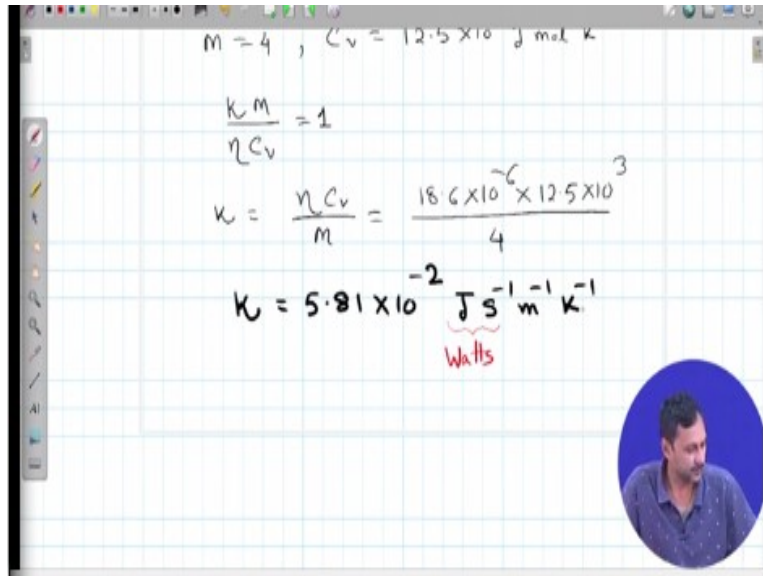 M = 4 , Cv = 12.5 × 10 J mol K
κ M / η Cv = 1
κ = η Cv / M = 18.6 × 10^-6 × 12.5 × 10^3 / 4
κ = 5.81 × 10^-2 J s^-1 m^-1 K^-1
Watts
AI